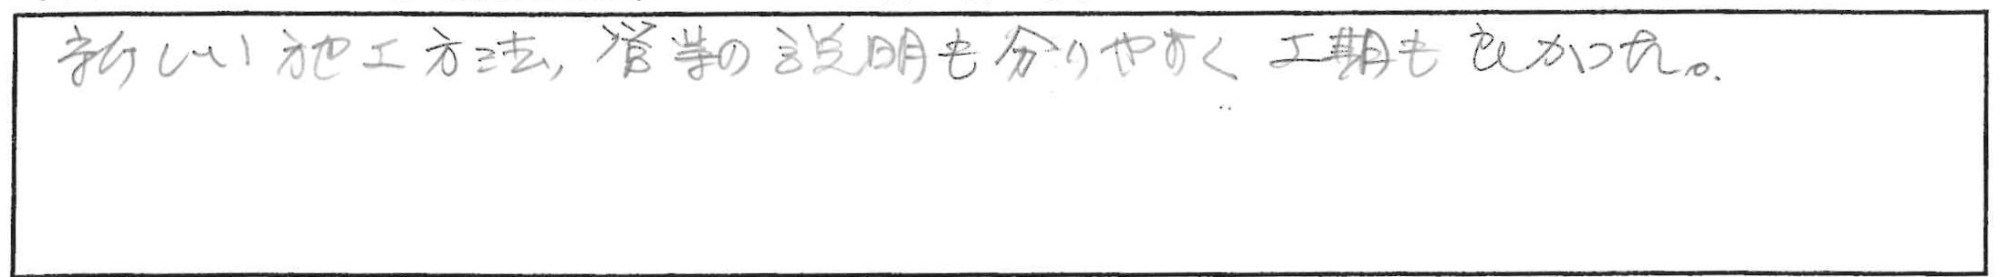 新しい施工方法、営業の説明も分りやすく工期も良かった。